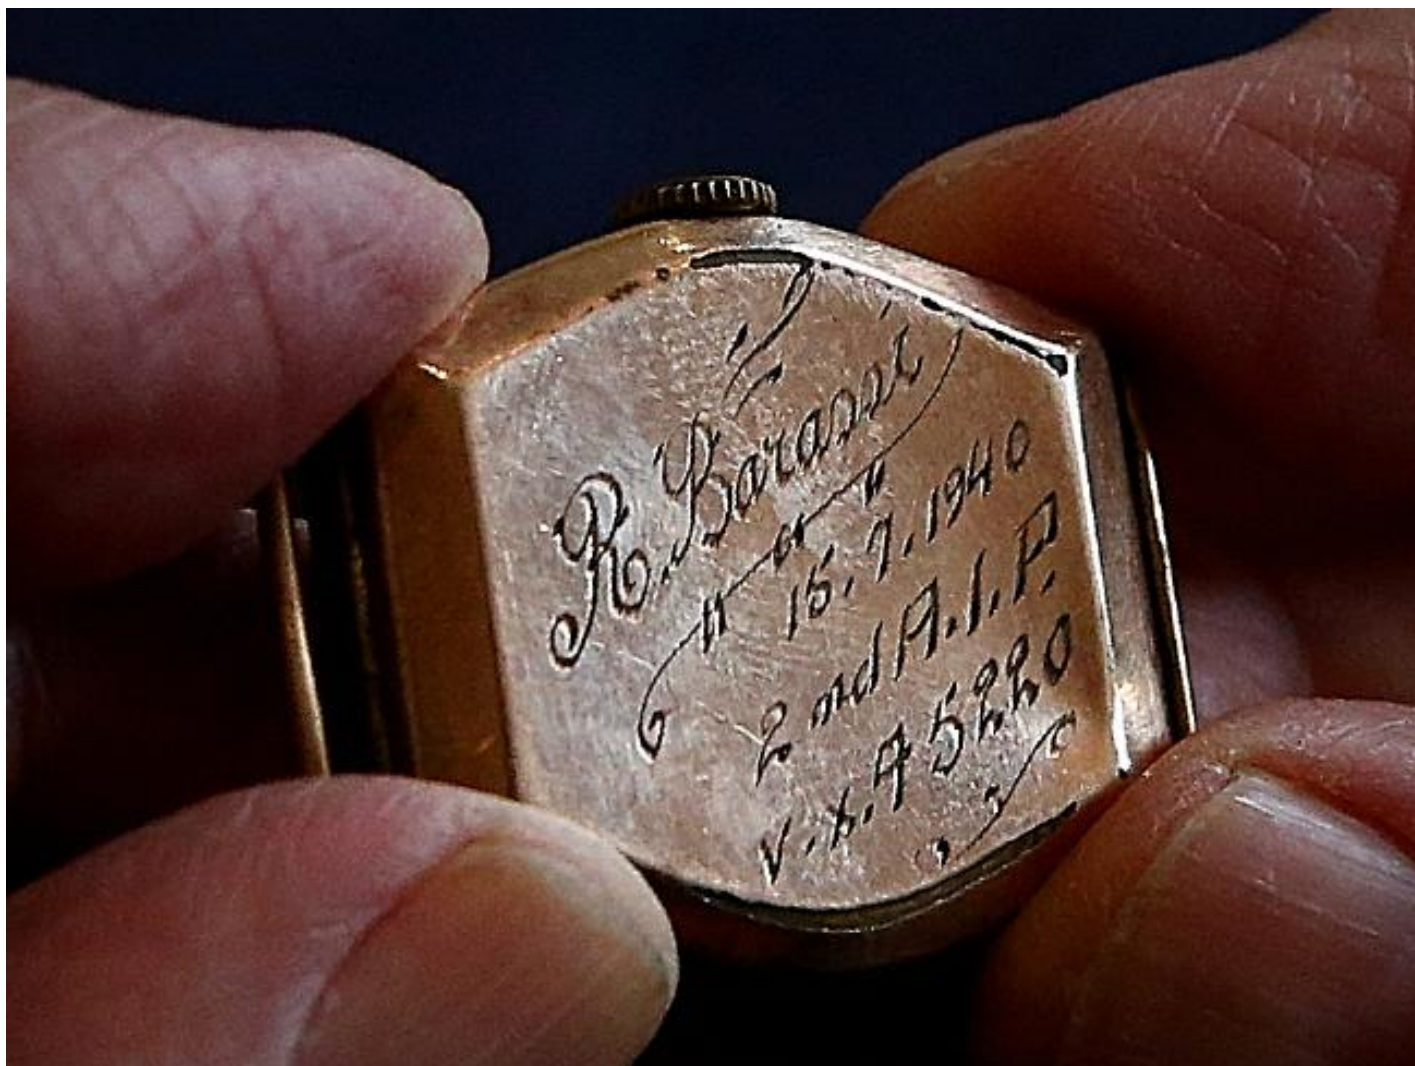 R. Barassi
15.7.1940
2nd A.I.F.
V.X.45220